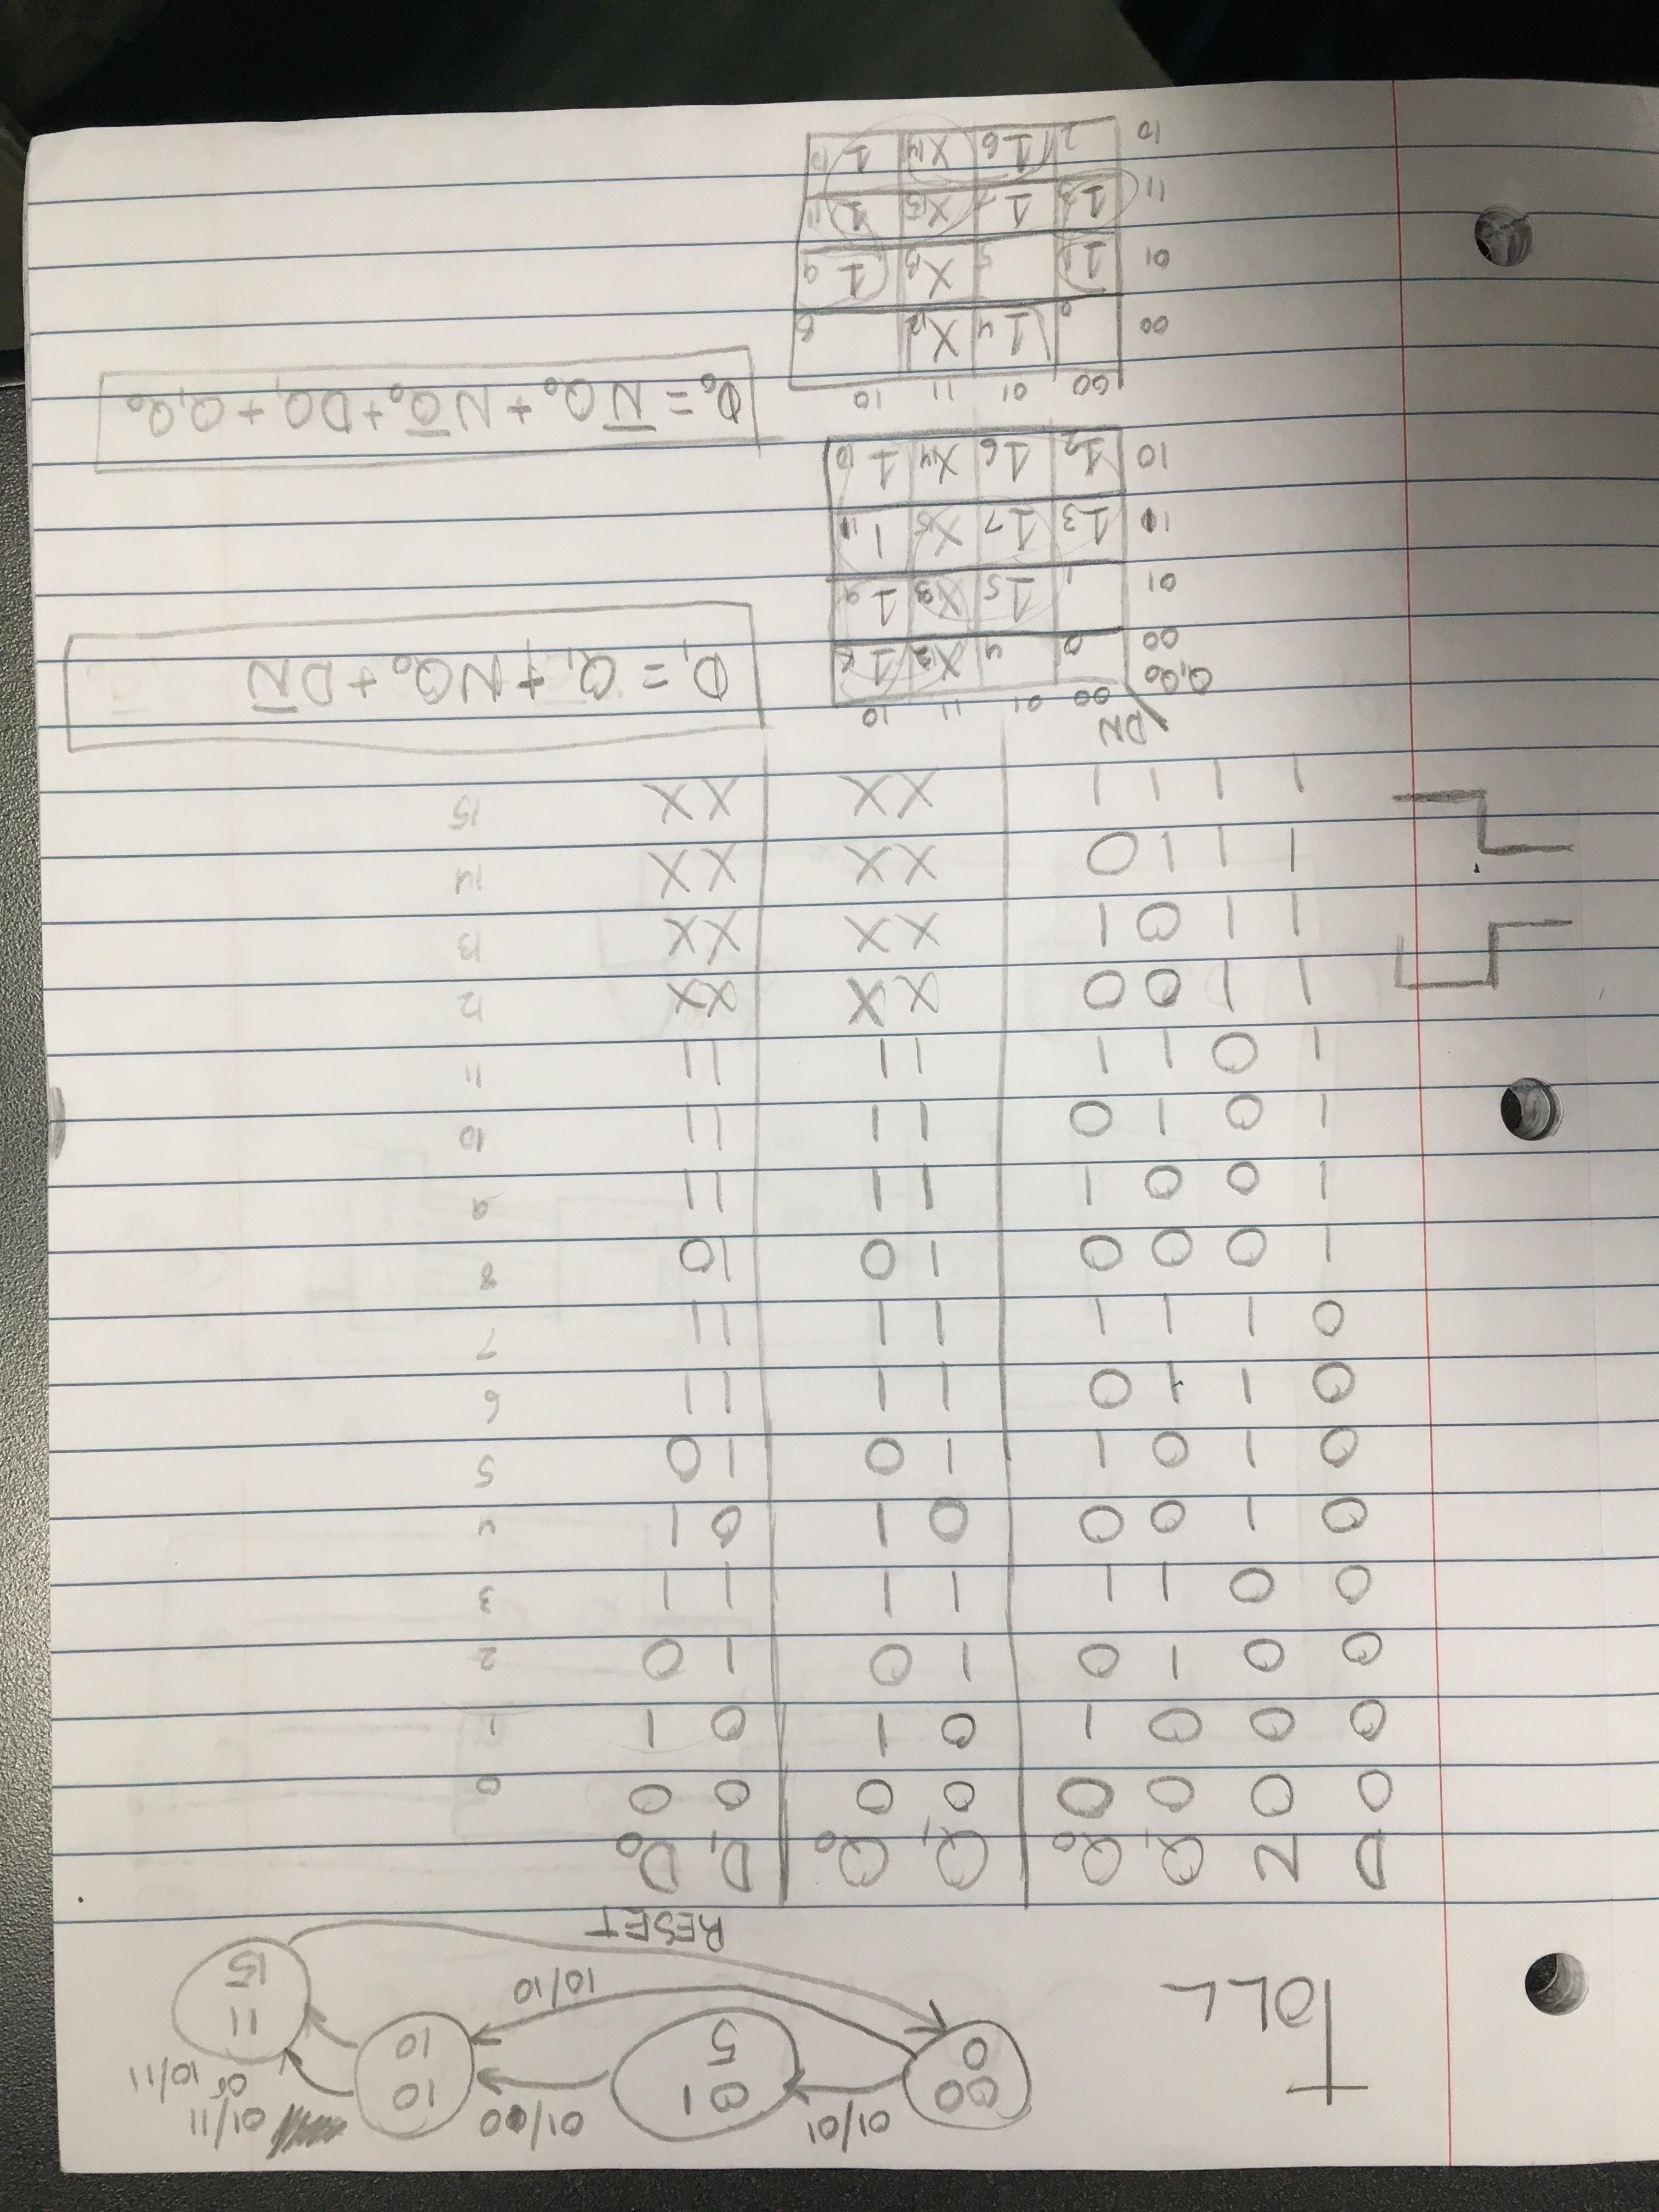 TOLL
00 0
01/01
01 5
01/00
10 10
01/11 or 10/11
11 15
10/10
RESET
D N Q₁ Q₀ Q₁ Q₀ D₁ D₀
0 0 0 0 0 0 0 0 0
0 0 0 1 0 1 0 1 1
0 0 1 0 1 0 1 0 2
0 0 1 1 1 1 1 1 3
0 1 0 0 0 1 0 1 4
0 1 0 1 1 0 1 0 5
0 1 1 0 1 1 1 1 6
0 1 1 1 1 1 1 1 7
1 0 0 0 1 0 1 0 8
1 0 0 1 1 1 1 1 9
1 0 1 0 1 1 1 1 10
1 0 1 1 1 1 1 1 11
1 1 0 0 X X X X 12
1 1 0 1 X X X X 13
1 1 1 0 X X X X 14
1 1 1 1 X X X X 15
DN
Q₁Q₀ 00 01 11 10
00 0 4 X12 1 8
01 1 1 5 X13 1 9
11 1 3 1 7 X15 1 11
10 1 2 1 6 X14 1 10
D₁ = Q₁ + NQ₀ + DN̅
00 01 11 10
00 0 1 4 X12 8
01 1 1 5 X13 1 9
11 1 3 1 7 X15 1 11
10 2 1 6 X14 1 10
D₀ = N̅Q₀ + NQ̅₀ + DQ₁ + Q₁Q₀